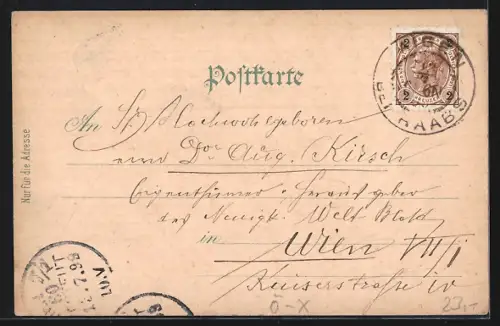 Postkarte
Nur für die Adresse
An Sr. Hochwohlgeboren
Dor Aug. Kirsch
Eigenthümer u Herausgeber
des Neuigk. Welt Blatt
in Wien VII/1
Kaiserstrasse 10
BEI RAABS
2
2
7.99
Ö-X
23,-